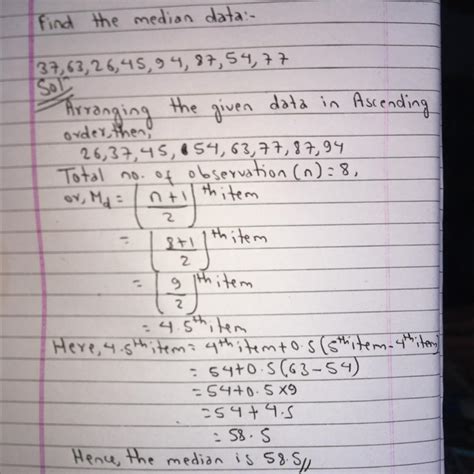 Find the median data:-
37,63,26,45,94,87,54,77
Solⁿ
Arranging the given data in Ascending
order,then,
26,37,45,54,63,77,87,94
Total no. of observation (n) = 8,
or, Md = (n+1/2)th item
= (8+1/2)th item
= (9/2)th item
= 4.5th item
Here, 4.5th item = 4th item + 0.5(5th item - 4th item)
= 54+0.5(63-54)
= 54+0.5×9
= 54+4.5
= 58.5
Hence, the median is 58.5//